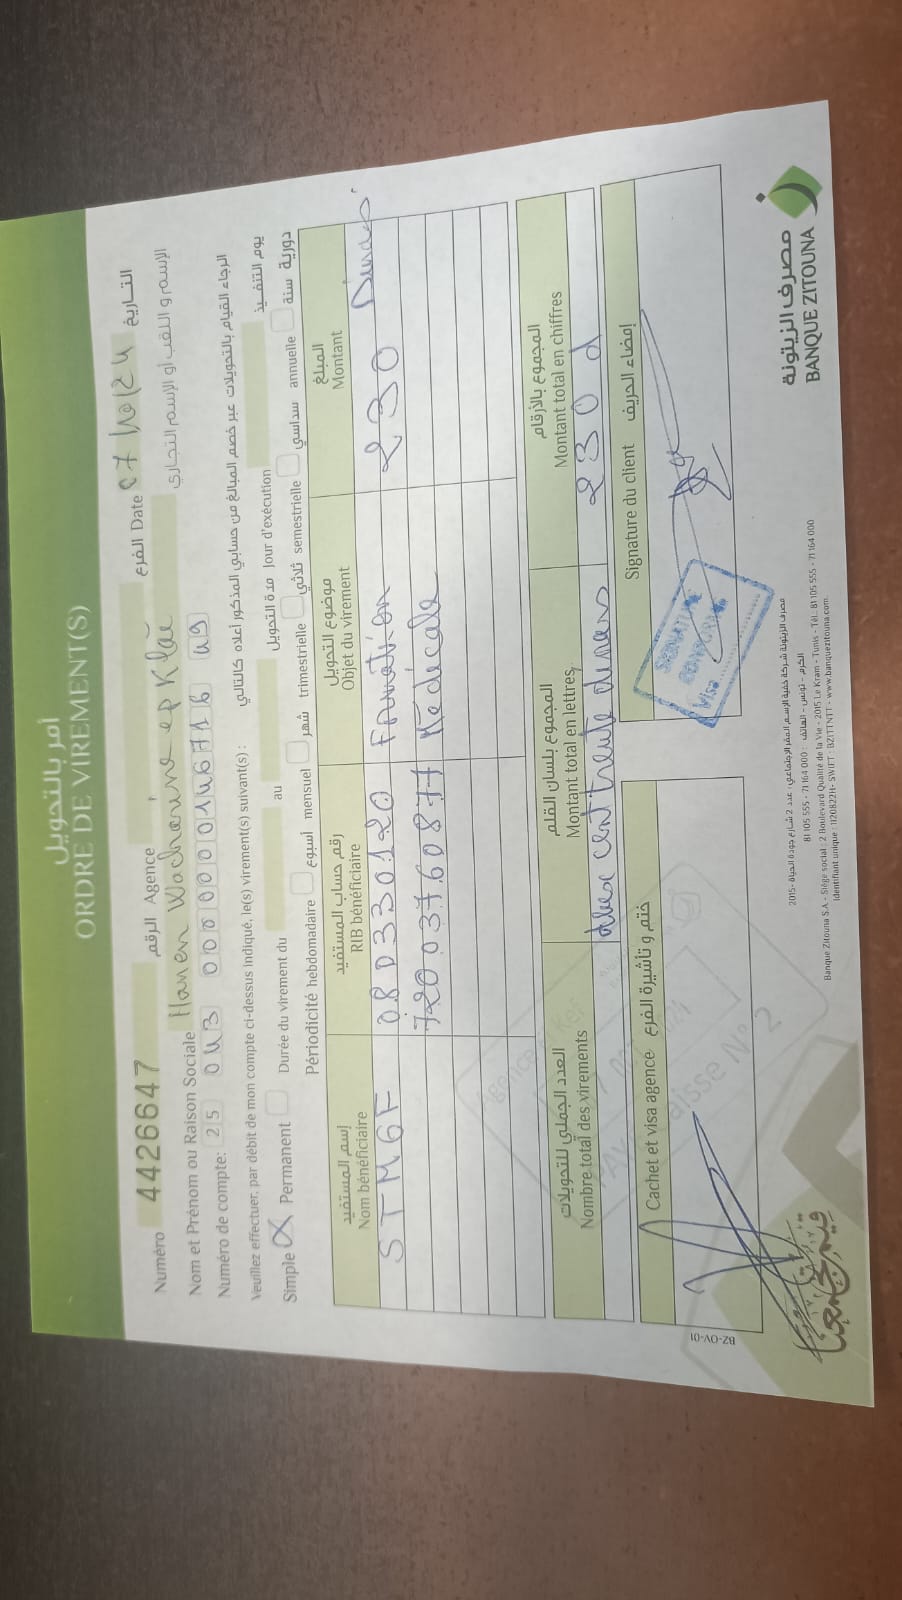 أمر بالتحويل
ORDRE DE VIREMENT(S)
Numéro 4426647 الرقم Agence الفرع Date 07 التاريخ
Nom et Prénom ou Raison Sociale Hanen Wacharine ep Klaü الإسم و اللقب أو الإسم التجاري
Numéro de compte: 25 043 000 0000146716 49
Veuillez effectuer, par débit de mon compte ci-dessus indiqué, le(s) virement(s) suivant(s) : الرجاء القيام بالتحويلات عبر خصم المبالغ من حسابي المذكور أعلاه كالتالي
Simple X Permanent Durée du virement du au مدة التحويل Jour d'exécution يوم التنفيذ
Périodicité hebdomadaire أسبوع mensuel شهر trimestrielle ثلاثي semestrielle سداسي annuelle سنة دورية
إسم المستفيد رقم حساب المستفيد موضوع التحويل المبلغ
Nom bénéficiaire RIB bénéficiaire Objet du virement Montant
STMGF 08033 0120 Formation 230 Dinars
720037608 77 Médicale
العدد الجملي للتحويلات المجموع بلسان القلم المجموع بالأرقام
Nombre total des virements Montant total en lettres Montant total en chiffres
deux cent trente dinars 230 d
Cachet et visa agence ختم و تأشيرة الفرع Signature du client إمضاء الحريف
SIGNATURE
CONFORME
Visa
Caisse N° 2
BZ-OV-01
مصرف الزيتونة
BANQUE ZITOUNA
مصرف الزيتونة شركة خفية الإسم المقر الإجتماعي : عدد 2 شارع جودة الحياة - 2015
الكرم - تونس - الهاتف : 71 164 000 - 81 105 555
Banque Zitouna S.A - Siège social : 2 Boulevard Qualité de la Vie - 2015 Le Kram - Tunis - Tél.: 81 105 555 - 71 164 000
Identifiant unique : 1120822H - SWIFT : BZITTNTT - www.banquezitouna.com